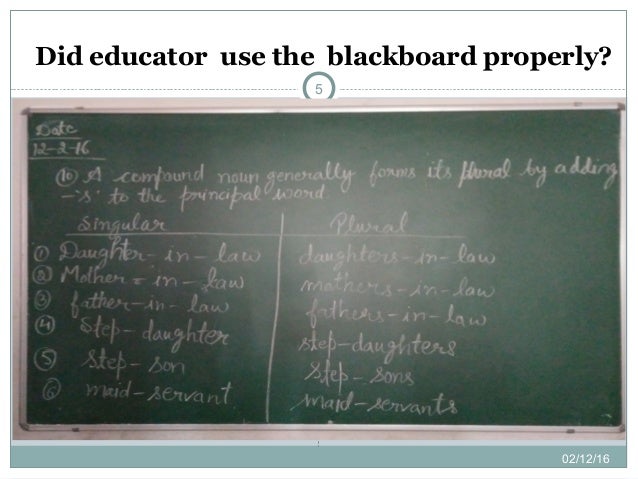 Did educator use the blackboard properly?
5
Date
12-2-16
(10) A compound noun generally forms its plural by adding
-'s' to the principal word
Singular Plural
(1) Daughter-in-law daughters-in-law
(2) Mother-in-law mothers-in-law
(3) father-in-law fathers-in-law
(4) Step-daughter step-daughters
(5) Step-son Step-sons
(6) maid-servant maid-servants
02/12/16